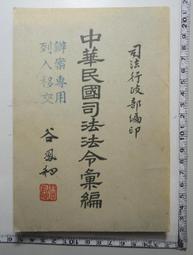 司法行政部編印
中華民國司法法令彙編
辦案專用
列入移交
谷鳳翔